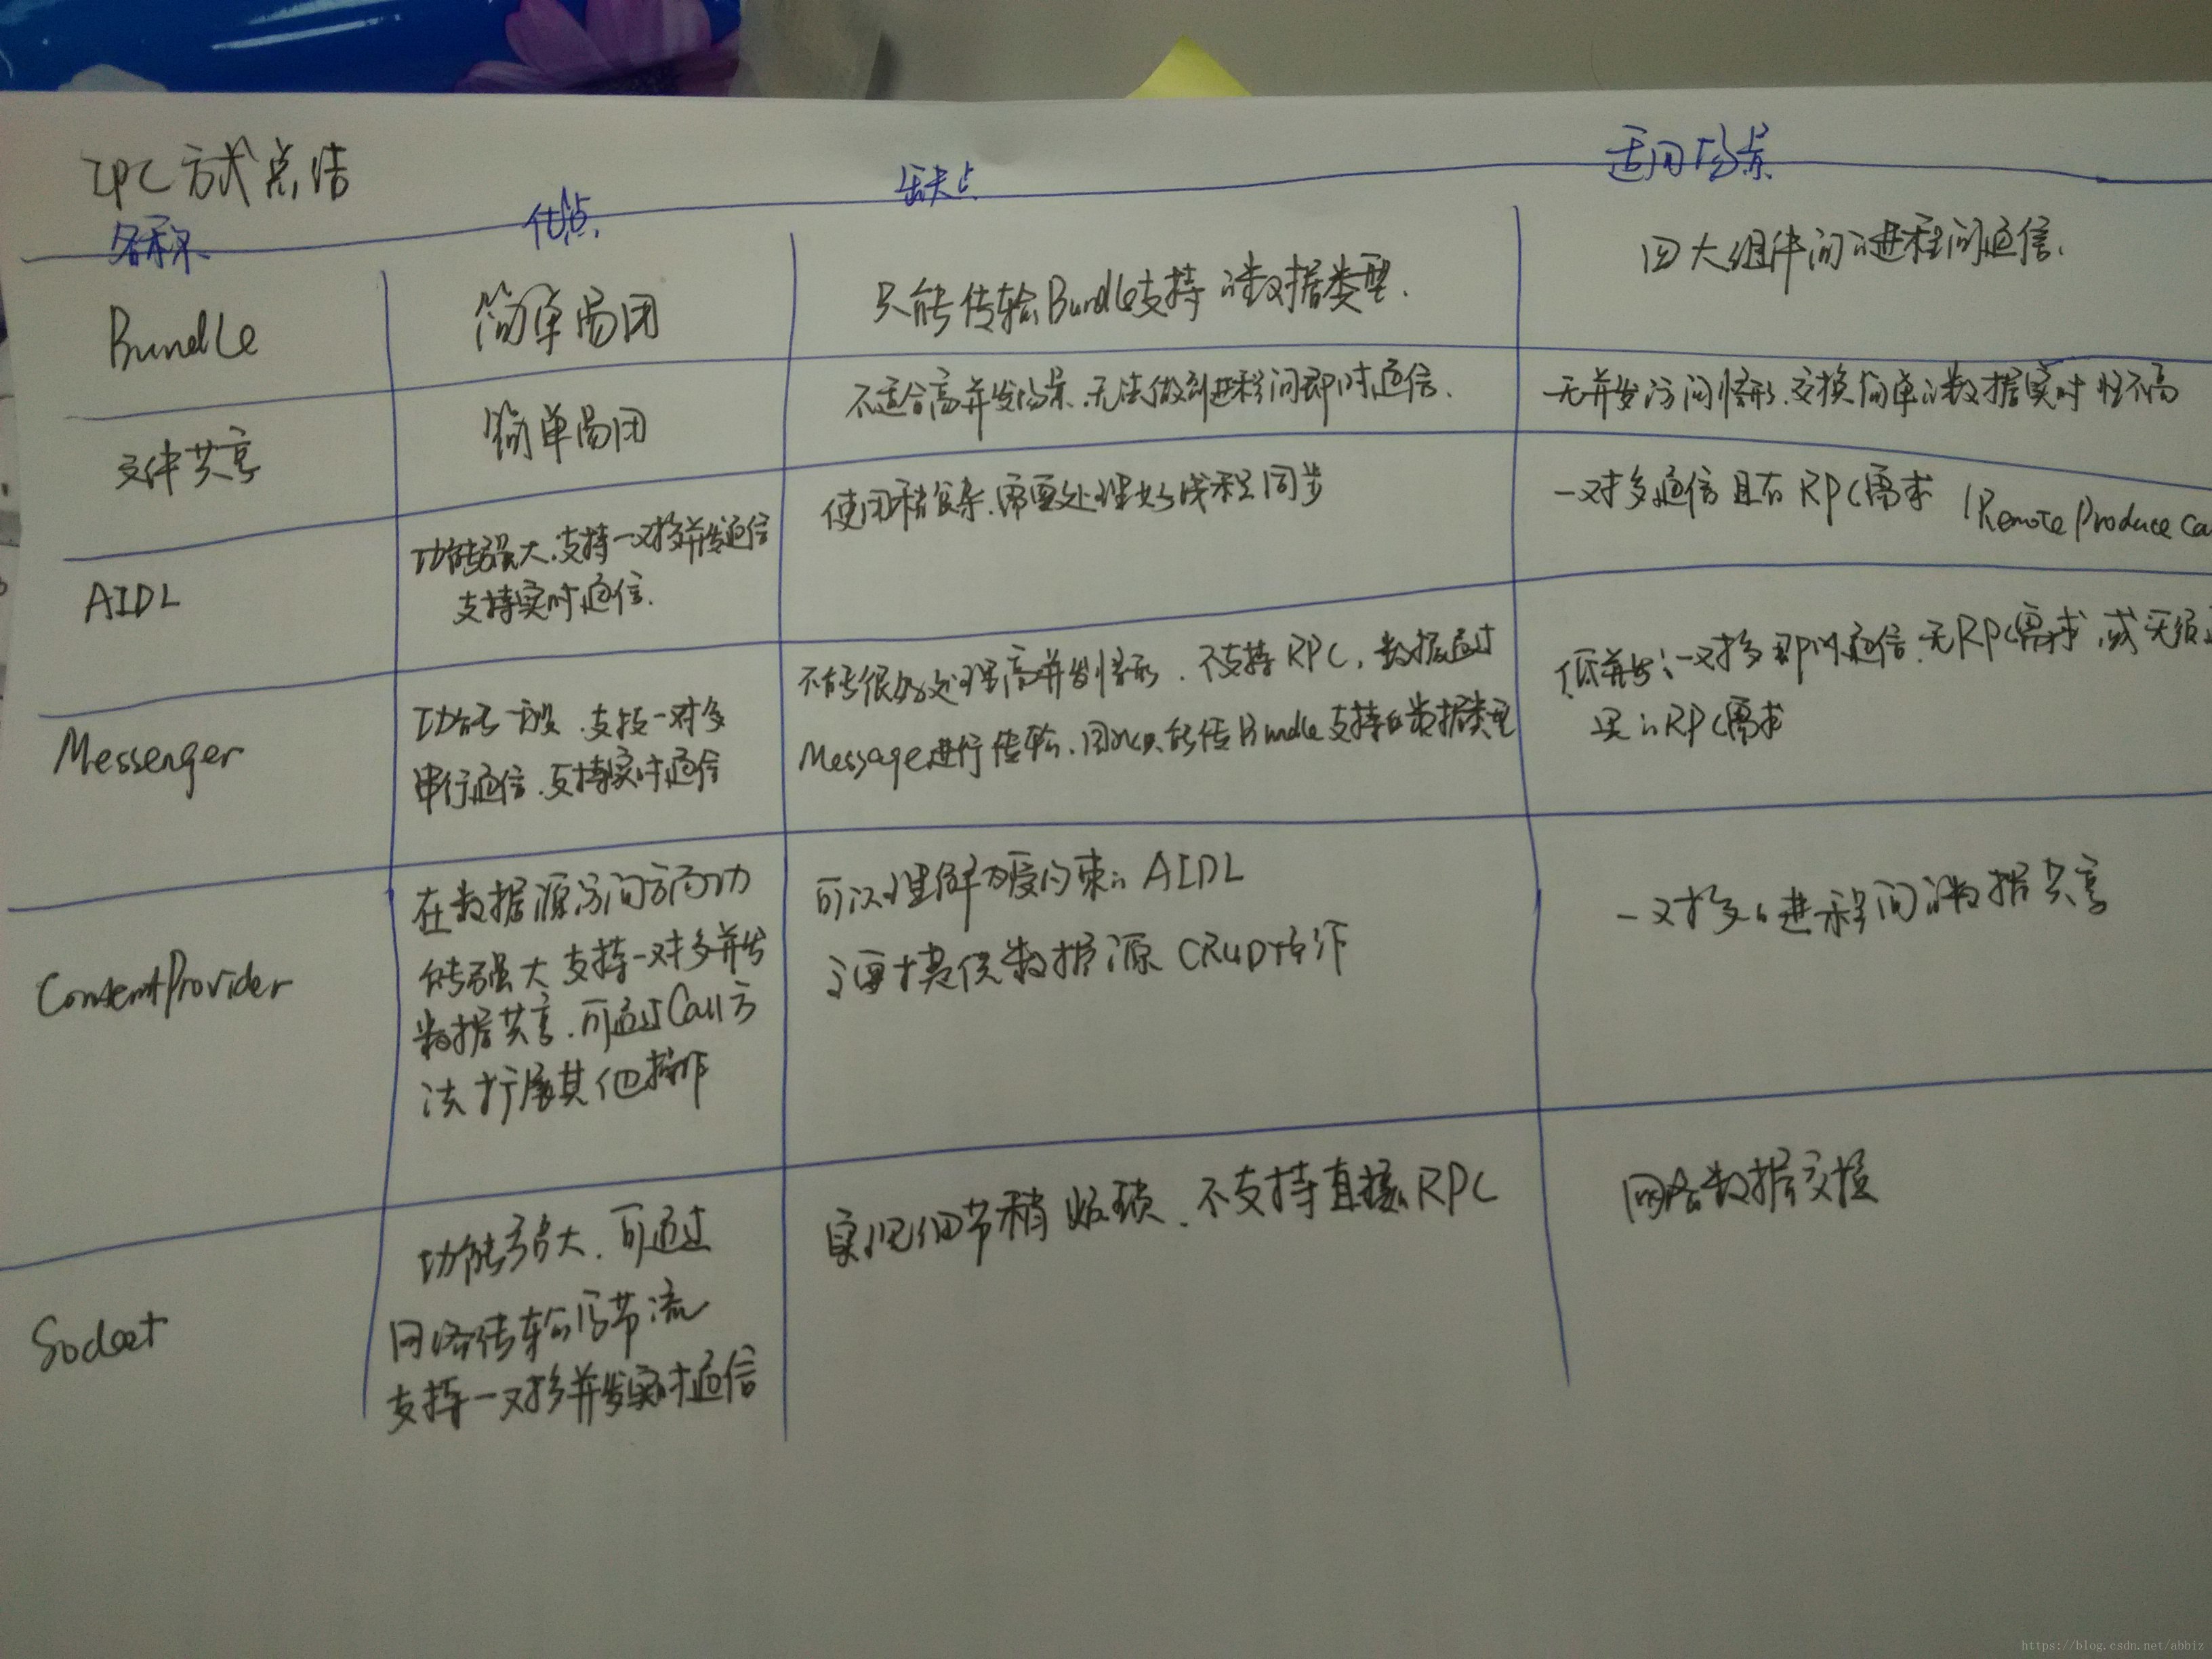 IPC方式总结
名称
优点
缺点
适用场景
Bundle
简单易用
只能传输Bundle支持的数据类型.
四大组件间的进程间通信.
文件共享
简单易用
不适合高并发场景.无法做到进程间即时通信.
无并发访问情形.交换简单的数据实时性不高
AIDL
功能强大.支持一对多并发通信
支持实时通信.
使用稍复杂.需要处理好线程同步
一对多通信且有RPC需求 (Remote Produce Ca
Messenger
功能一般.支持一对多
串行通信.支持实时通信
不能很好处理高并发情形.不支持RPC,数据通过
Message进行传输.因此只能传Bundle支持的数据类型
低并发的一对多即时通信.无RPC需求.或无须
果的RPC需求
ContentProvider
在数据源访问方面功
能强大 支持一对多并发
数据共享.可通过Call方
法扩展其他操作
可以理解为受约束的AIDL
主要提供数据源CRUD操作
一对多的进程间的数据共享
Socket
功能强大.可通过
网络传输字节流
支持一对多并发实时通信
实现细节稍烦琐.不支持直接RPC
网络数据交换
https://blog.csdn.net/abbiz